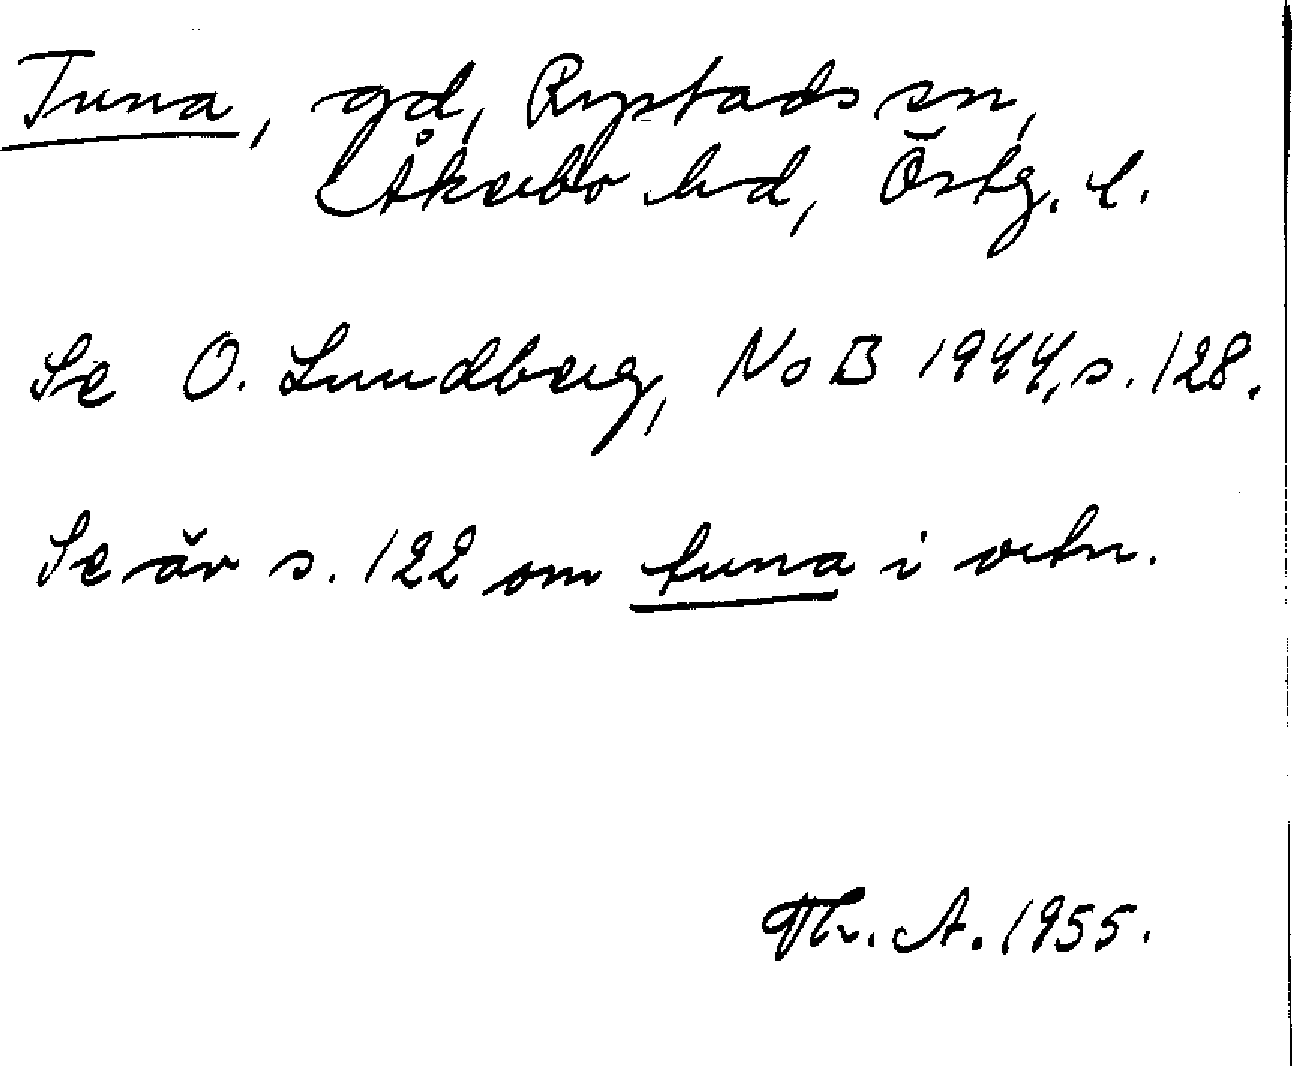 Tuna, gd, Rystads sn,
Åkerbo hd, Östg. l.
Se O. Lundberg, NoB 1944, s. 128.
Se äv s. 122 om tuna i ortn.
Th. A. 1955.